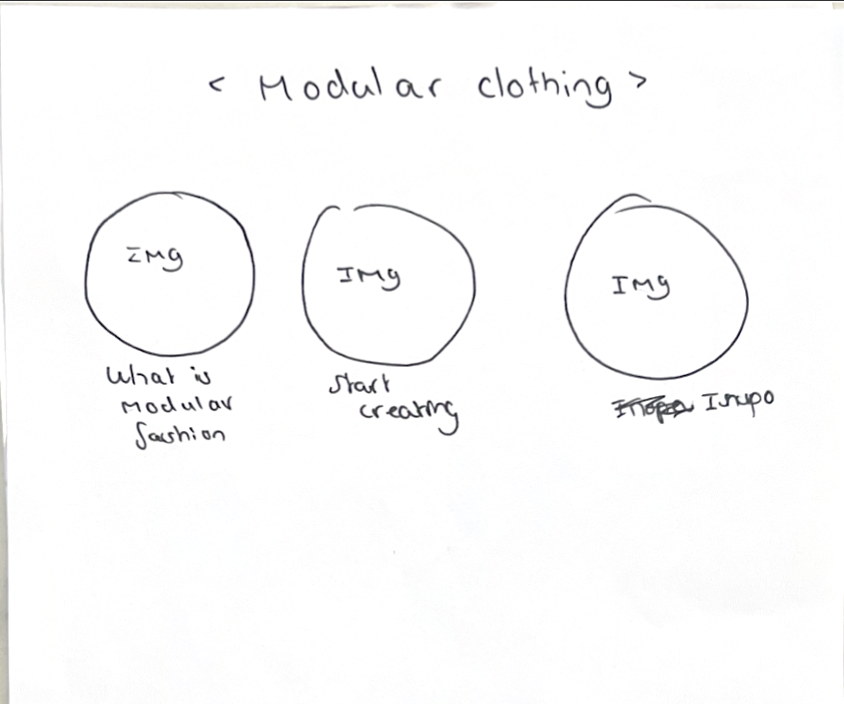 < Modular clothing >
IMg
IMg
IMg
What is
Modular
fashion
Start
creating
Inspo